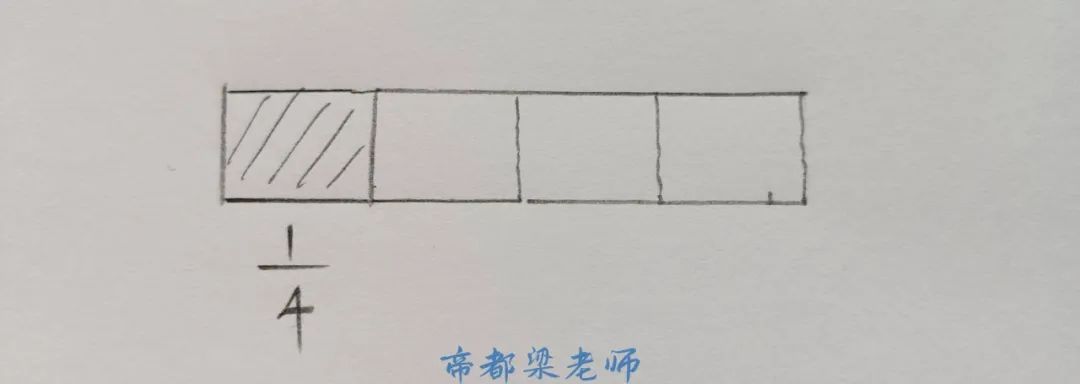 1/4
帝都梁老师